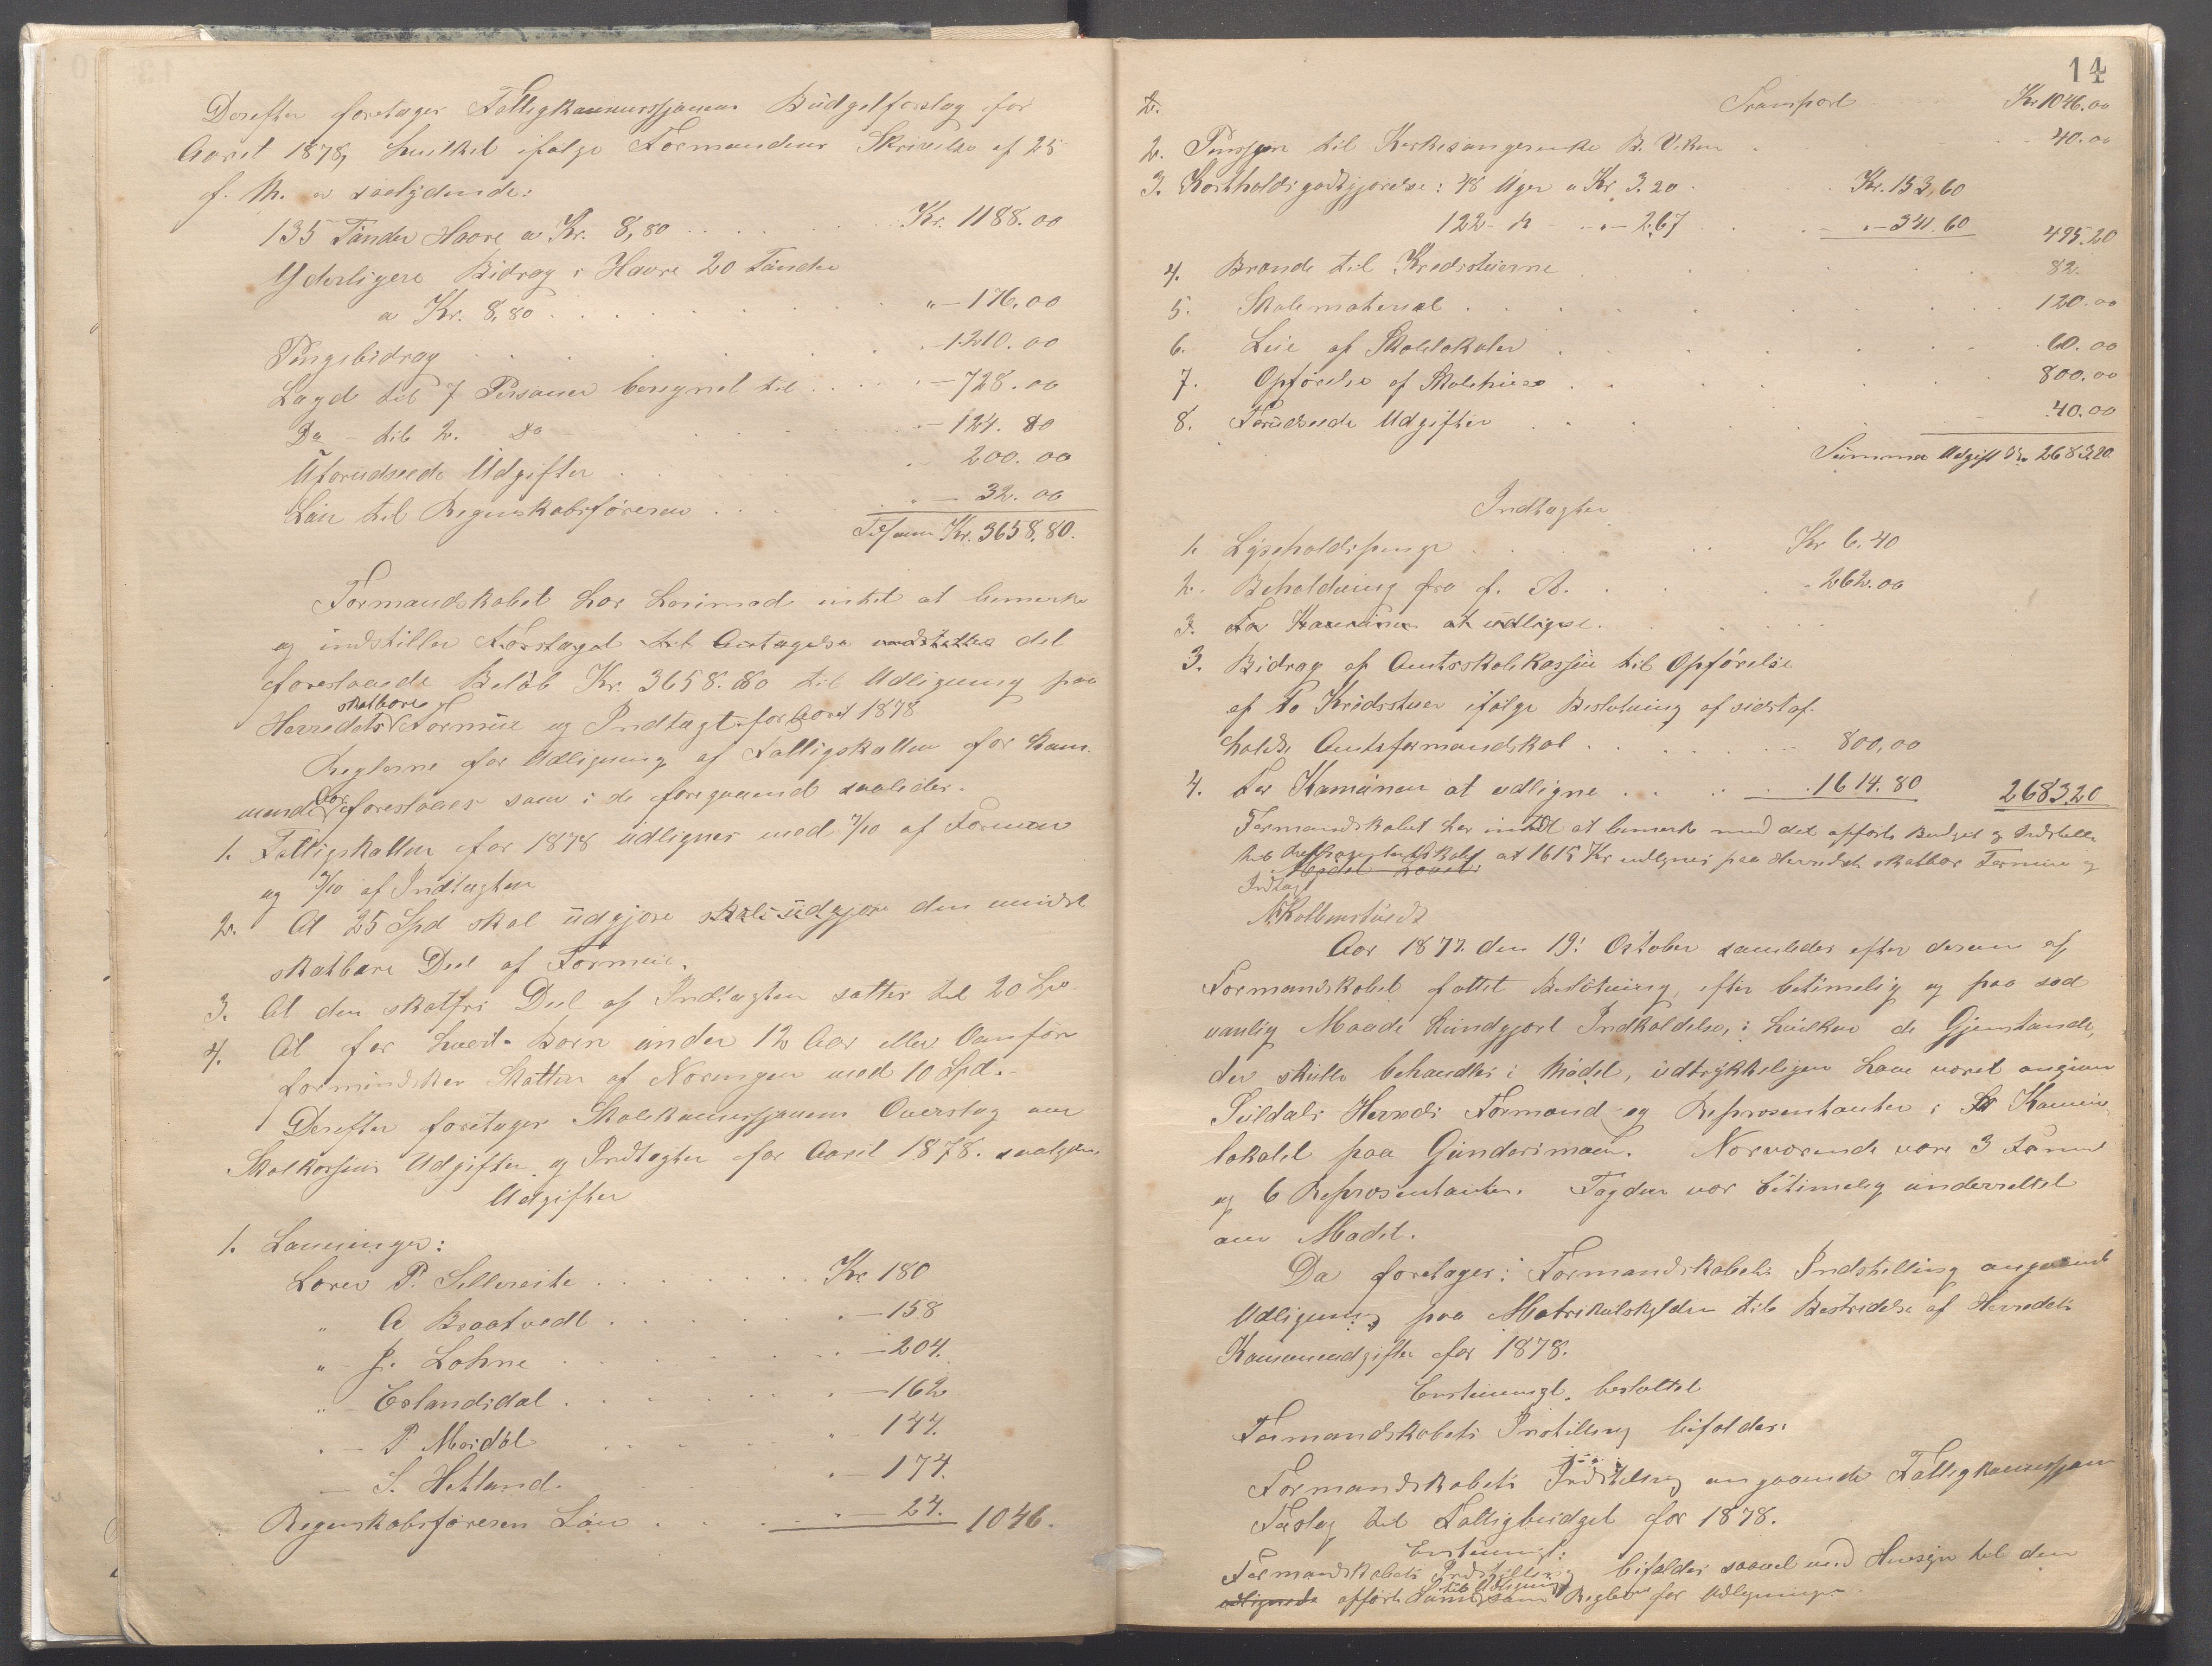 Derefter foretages Fattigkommissjonens Budgetforslag for
Aaret 1878, hvilket ifølge Formandens Skrivelse af 25
f. M. er saalydende:
135 Tønder Havre a Kr. 8,80 . . . . . . Kr. 1188.00
Yderligere Bidrag i Havre 20 Tønder
a Kr. 8,80 . . . . . . . . . „ — 176.00
Pengebidrag . . . . . . . . — 1210.00
Lagd til 7 Personer beregnet til . . . . — 728.00
Do — til 2. Do — . . . . — 124.80
Uforudseede Udgifter . . . . 200.00
Løn til Regnskabsføreren . . . . — 32.00
Tilsammen Kr. 3658.80.
Formandskabet har herimod intet at bemerke
og indstiller Forslaget til Antagelse det
forestaaende Beløb Kr. 3658.80 til Udligning paa
skatbare
Herredets Formue og Indtægt for Aaret 1878
Reglerne for Udligning af Fattigskatten for kom-
Aar
mende foreslaaes som i de foregaaende saaledes.
1. Fattigskatten for 1878 udlignes med 7/10 af Formuen
og 3/10 af Indtægten
2. At 25 Spd skal udgjøre skal udgjøre den mindst
skatbare Deel af Formue.
3. At den skatfri Deel af Indtægten sættes til 20 Spd
4. At for hvert Barn under 12 Aar eller Vanfør
formindsker Skatten af Næringen med 10 Spd.
Derefter foretages Skolekommissjonens Overslag over
Skolekassens Udgifter og Indtægter for Aaret 1878. saalyden
Udgifter
1. Lønninger:
Lærer P. Sellereite . . . . . . . Kr 180
„ A Braatvedt . . . . . . — 158
„ — J. Lohne . . . . . — 204.
„ — Eslandsdal . . . . . . — 162
. — P. Mosdøl . . . . . — 144.
— S. Hetland. . . . . — 174.
Regnskabsføreren Løn . . . . . . — 24. 1046.
14
2. Transport Kr 1046.00
2. Pension til Kirkesangerenke B. Viken . . . 40.00
3. Kostholdsgodtgjørelse: 48 Uger a Kr. 3.20 . . Kr. 153,60
122 - „ - - „ - 2,67 . . . „ — 341.60 495.20
4. Brænde til Kredsstuerne . . . . 82.
5. Skolemateriel . . . . . . 120.00
6. Leie af Skolelokaler . . . . . 60.00
7. Opførelse af Skolehuse . . . . . 800.00
8. Forudseede Udgifter . . . . . 40.00
Summa Udgift Kr. 2683.20
Indtægter
1. Lyseholdspenge . . . . . Kr 6.40
2. Beholdning fra f. A. . . . . 262.00
3. For Kommunen at udligne. . . .
3. Bidrag af Amtsskolekassen til Opførelse
af to Kredsstuer ifølge Beslutning af sidst af-
holdte Amtsformandskab . . . . . . . 800,00
4. For Kommunen at udligne . . . . . 1614.80 2683.20
Formandskabet har intet at bemerke med det opførte Budget og Indstiller
til Repræsentantskabet at 1615 Kr udlignes paa Herredets skatbar Formue og
Indtægt
N. Kolbenstvedt
Aar 1877. den 19. October samledes efter derom af
Formandskabet fattet Beslutning, efter betimelig og paa sed
vanlig Maade kundgjort Indkaldelse, i hvilken de Gjenstande,
der skulle behandles i Mødet, udtrykkeligen have været angivne
Suldals Herreds Formænd og Repræsentanter i Kommune
lokalet paa Gundersmoen. Nærværende vare 3 Formænd
og 6 Repræsentanter. Fogden var betimelig underrettet
om Mødet.
Da foretages: Formandskabets Indstilling angaaende
Udligning paa Matrikulskylden til Bestridelse af Herredets
Kommunudgifter for 1878.
Enstemmigt besluttet
Formandskabets Instilling bifaldes.
Formandskabets Indstilling angaaende Fattigkommissjonens
Forslag til Fattigbudget for 1878.
Enstemmigt:
Formandskabets Indstilling bifaldes saavel med Hensyn til den
til Udligning
opførte Sum som Reglerne for Udligningen.